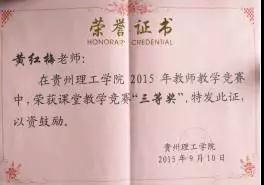 荣誉证书
HONORARY CREDENTIAL
黄红梅老师：
在贵州理工学院 2015 年教师教学竞赛
中，荣获课堂教学竞赛“三等奖”，特发此证，
以资鼓励。
贵州理工学院
2015 年 9 月 10 日